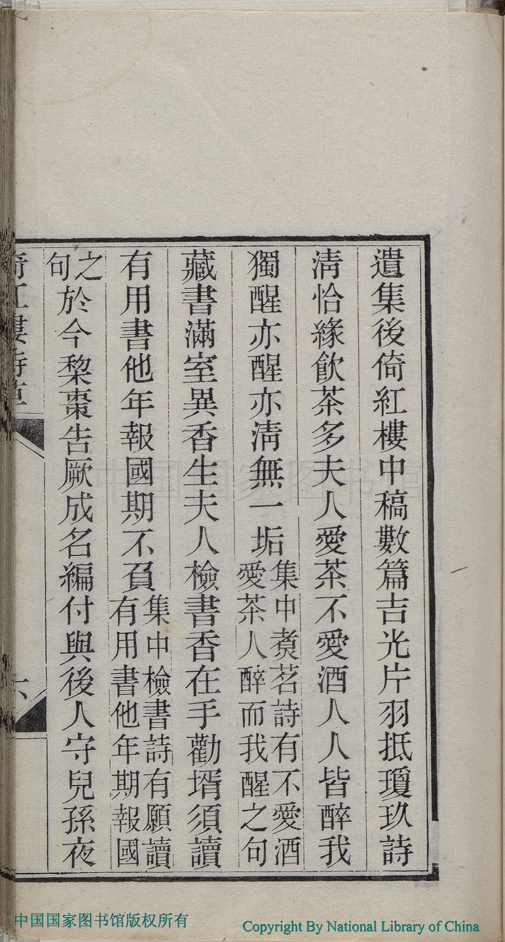 遺集後倚紅樓中稿數篇吉光片羽抵瓊玖詩
淸恰緣飮茶多夫人愛茶不愛酒人人皆醉我
獨醒亦醒亦淸無一垢集中煑茗詩有不愛酒
愛茶人醉而我醒之句
藏書滿室異香生夫人檢書香在手勸壻須讀
有用書他年報國期不負集中檢書詩有願讀
有用書他年期報國
之
句於今棃棗告厥成名編付與後人守兒孫夜
倚紅樓詩草
六
中国国家图书馆
中国国家图书馆版权所有
Copyright By National Library of China